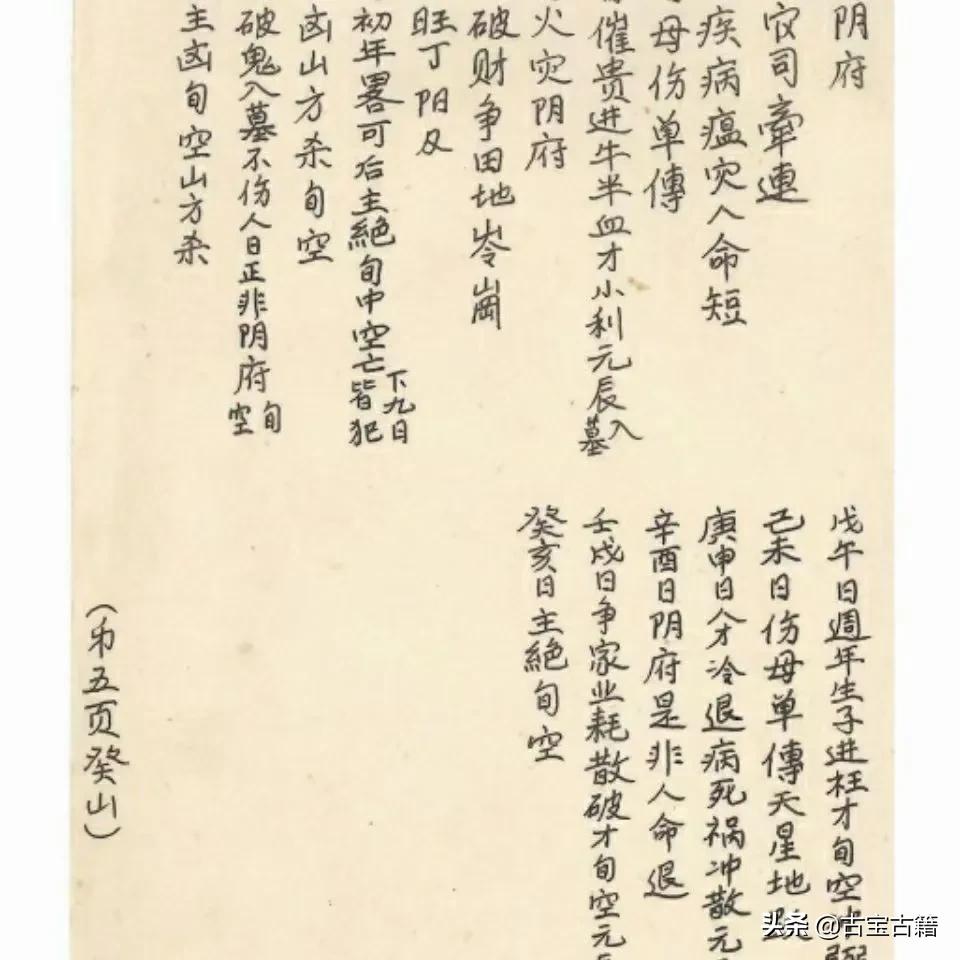 阴府
官司牵連
疾病瘟灾人命短
母伤单傳
催贵进牛半血才小利元辰入墓
火灾阴府
破财争田地岺崗
旺丁阳及
初年畧可后主絕旬中空亡皆犯
下九日
凶山方杀旬空
破鬼入墓不伤人日正非阴府旬空
主凶旬空山方杀
戊午日週年生子进枉才旬空冲
己未日伤母单傳天星地
庚申日人才冷退病死祸冲散元
辛酉日阴府是非人命退
壬戌日争家业耗散破才旬空元
癸亥日主絕旬空
(弟五页癸山)
头条 @古宝古籍